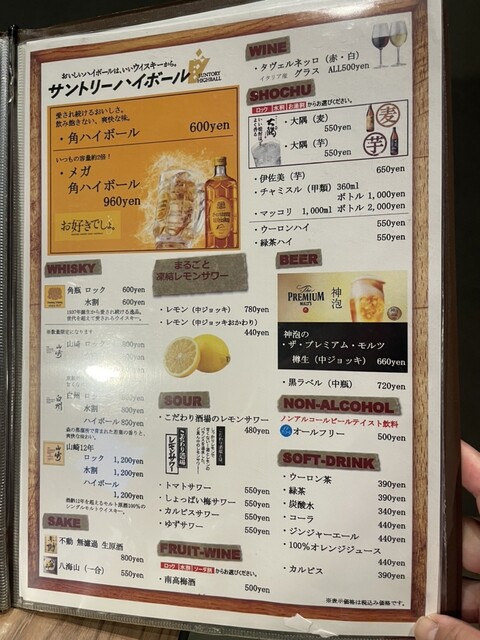 おいしいハイボールは、いいウイスキーから。
サントリーハイボール
SUNTORY
HIGHBALL
愛され続けるおいしさ。
飲み飽きない、爽快な味。
・角ハイボール 600yen
いつもの容量約2倍!
・メガ
角ハイボール
960yen
お好きでしょ。
WHISKY
角瓶 ロック 600yen
水割 600yen
1937年誕生から愛され続ける逸品。
世代を超えて愛されるウイスキー。
※数量限定になります
山崎 ロック
白州 ロック
水割 800yen
ハイボール 800yen
森の蒸溜所で育まれた若葉の香りと、
爽快な味わい。
山崎12年
ロック 1,200yen
水割 1,200yen
ハイボール
1,200yen
酒齢12年を超えるモルト原酒100%の
シングルモルトウイスキー。
SAKE
不動 無濾過 生原酒
800yen
八海山(一合) 550yen
まるごと
凍結レモンサワー
・レモン(中ジョッキ) 780yen
・レモン(中ジョッキおかわり)
440yen
SOUR
・こだわり酒場のレモンサワー
480yen
こだわり酒場の
レモンサワー
・トマトサワー 550yen
・しょっぱい梅サワー 550yen
・カルピスサワー 550yen
・ゆずサワー 550yen
FRUIT-WINE
ロック 水割 ソーダ割 からお選びください。
・南高梅酒 500yen
WINE
・タヴェルネッロ(赤・白)
イタリア産 グラス ALL500yen
SHOCHU
ロック 水割 お湯割 からお選びください。
大隅
・大隅(麦)
550yen
・大隅(芋)
550yen
麦
芋
・伊佐美(芋) 650yen
・チャミスル(甲類) 360ml
ボトル 1,000yen
・マッコリ 1,000ml ボトル 2,000yen
・ウーロンハイ 550yen
・緑茶ハイ 550yen
BEER
The
PREMIUM
MALT'S
神泡
神泡の
・ザ・プレミアム・モルツ
樽生(中ジョッキ) 660yen
・黒ラベル(中瓶) 720yen
NON-ALCOHOL
ノンアルコールビールテイスト飲料
オールフリー 500yen
SOFT-DRINK
・ウーロン茶 390yen
・緑茶 390yen
・炭酸水 340yen
・コーラ 440yen
・ジンジャーエール 440yen
・100%オレンジジュース
440yen
・カルピス 390yen
※表示価格は税込み価格です。